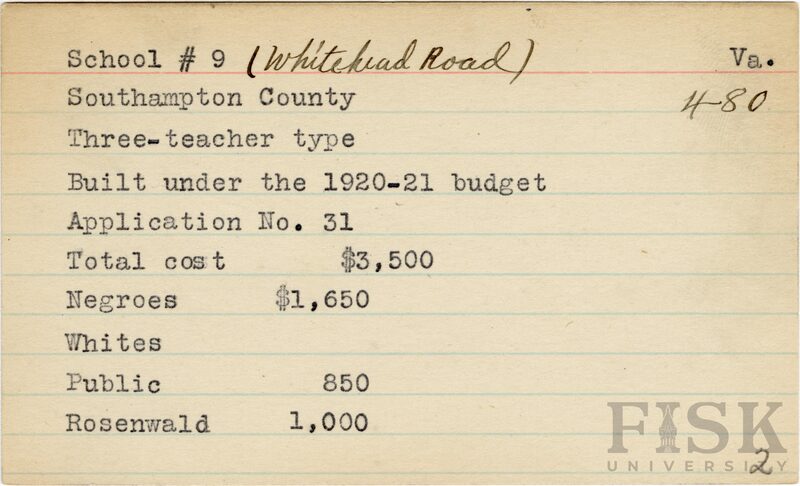 School # 9 (Whitehead Road) Va.
Southampton County 4-80
Three-teacher type
Built under the 1920-21 budget
Application No. 31
Total cost $3,500
Negroes $1,650
Whites
Public 850
Rosenwald 1,000
FISK
UNIVERSITY
2